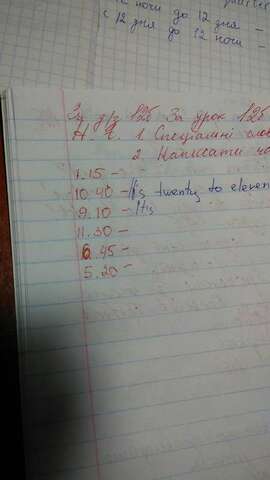 ночи до 12 дня -
с 12 дня до 12 ночи -
За д/з 12б За урок 12б
Н. І. 1. Спеціальні слов
2. Написати ча
1.15 -
10.40 - It's twenty to eleven
9.10 - It's
11.30 -
6.45 -
5.20 -